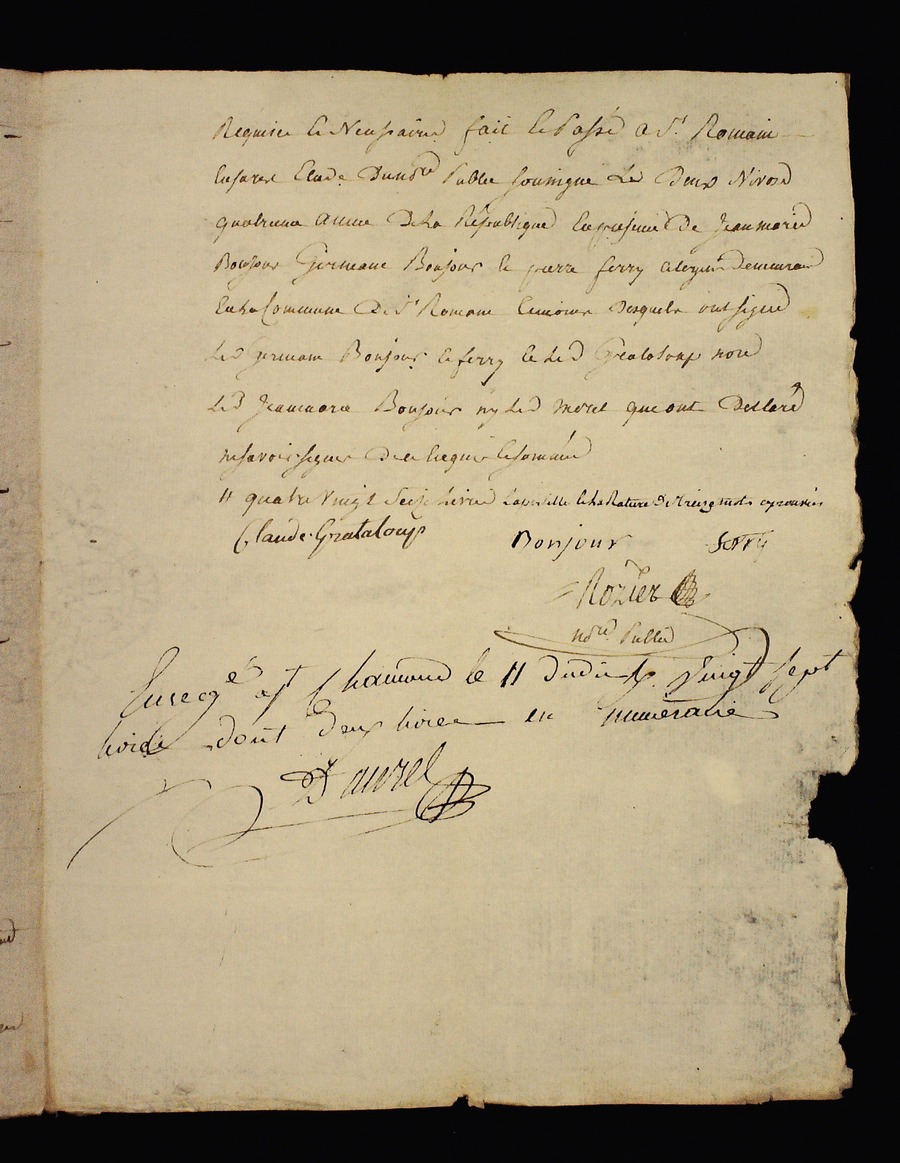 Requise et Necessaire fait et Passé a St Romain
Enjarez Etude Dunore Public soussigné Le Deux Nivose
quatrieme année De La République En presence De Jean marie
Bonjour Germain Bonjour et pierre ferry citoyens Demeurant
En La Commune De St Romain temoins Desquels ont signé
Led Germain Bonjour et ferry et Led Grataloup non
Led Jean marie Bonjour ny Led Morel que ont Declaré
ne savoir signer De ce Enquis et sommé
11 quatre vingt seize livres La rature De treize mots approuvés
Claude Grataloup Bonjour ferry
Rozier
nore Public
Enregé a st Chamond le 11 dudit vingt sept
livres dont deux livres en numeraire
Daurel